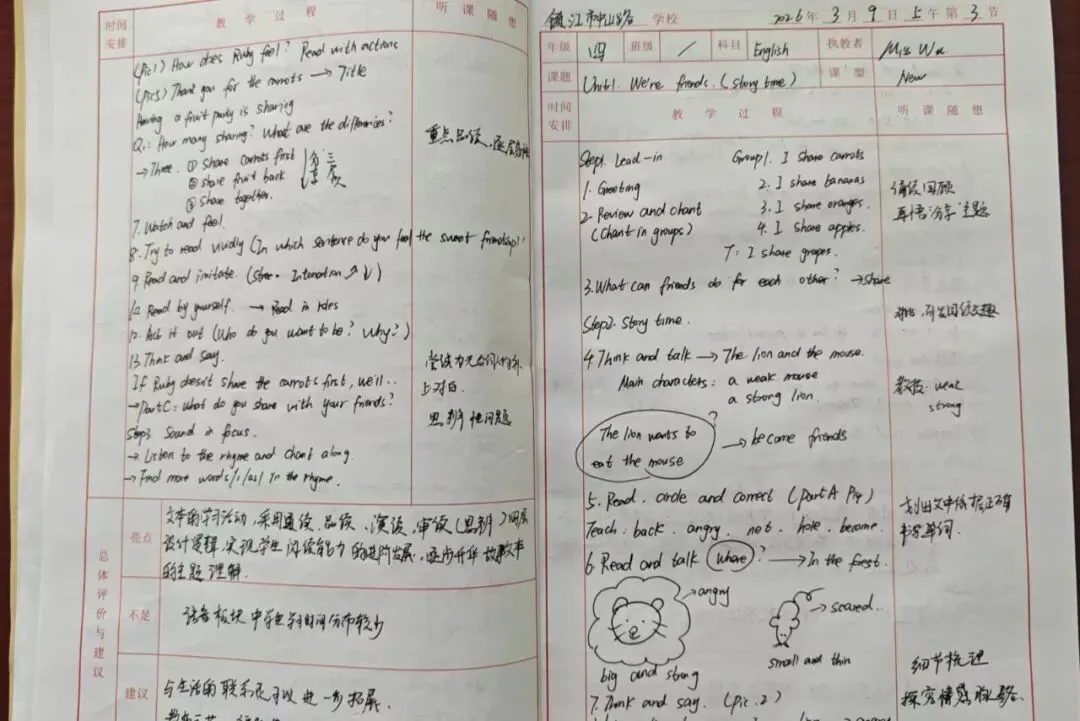 时间安排 教学过程 听课随想
(pic1) How does Ruby feel? Read with actions
(pic5) Thank you for the carrots → Title
Having a fruit party is sharing
Q1: How many sharing? What are the differences?
→Three. ① share carrots first
② share fruit back
③ share together.
分享三次
重点品读,逐层
7. Watch and feel.
8. Try to read vividly (In which sentence do you feel the sweet friendship?)
9. Read and imitate. (Stre Intonation ↗ ↘)
Read by yourself. → Read in roles
12. Act it out (Who do you want to be? Why?)
13. Think and say.
If Ruby doesn't share the carrots first, we'll..
→PartC: What do you share with your friends?
上对白.
思辨性问题
Step3 Sound in focus.
→ Listen to the rhyme and chant along.
→ Find more words in the rhyme.
总体评价与建议
亮点
文本的学习活动,采用通读、品读、演读、审读(思辨)四层
设计逻辑,实现学生阅读能力的进阶发展,逐步升华故事文本
的主题理解.
不足
语音板块中学生学习时间分布较少
建议
与生活的联系还可以进一步拓展.
镇江市中山路 学校 2026年3月9日 午第3节
年级 四 班级 / 科目 English 执教者 Miss Wu
课题 Unit1. We're friends. (Story time) 课型 New
时间安排 教学过程 听课随想
Step1. Lead-in Group1. I share carrots
1. Greeting 2. I share bananas
2. Review and chant 3. I share oranges.
(Chant in groups) 4. I share apples.
T: I share grapes.
诵读回顾
再悟"分享"主题
3. What can friends do for each other? →share
Step2. Story time.
4. Think and talk → The lion and the mouse.
Main characters: a weak mouse
a strong lion.
教授: weak
strong
The lion wants to eat the mouse ? → become friends
5. Read, circle and correct (Part A P14)
Teach: back, angry, not, hole, become.
划出文中依据,正确
书写单词.
6. Read and talk where? → In the forest.
angry
scared.
big and strong
small and thin
细节梳理
探究情感
7. Think and say. (Pic.2)